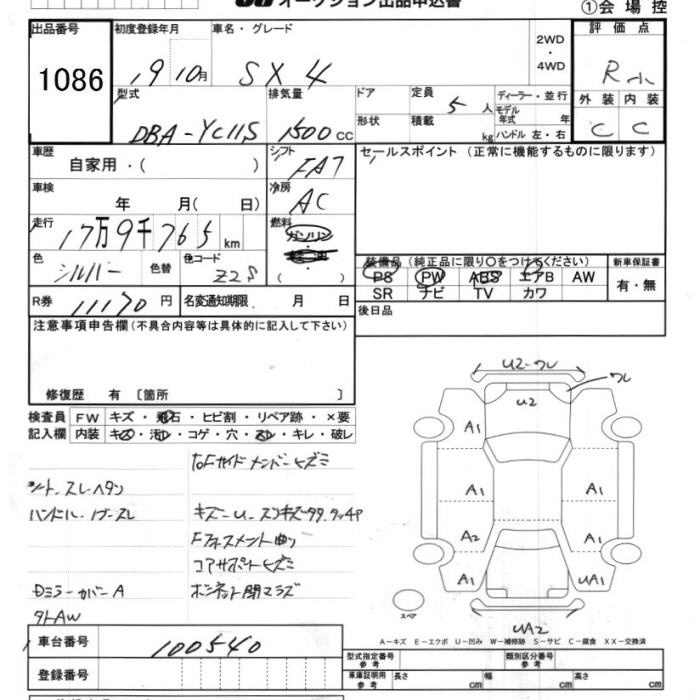 オークション出品申込書
①会場控
出品番号 初度登録年月 車名・グレード 2WD ・ 4WD 評価点
1086 19 10月 SX4 R
型式 排気量 ドア 定員 5人 ディーラー・並行 外装 内装
DBA-YC11S 1500cc 形状 積載 kg モデル年式 年 ハンドル 左・右 C C
車歴 自家用・( ) シフト FA7 セールスポイント (正常に機能するものに限ります)
車検 年 月( 日) 冷房 AC
走行 17万9千765km 燃料 ガソリン
色 シルバー 色替 色コード Z2S ( ) 装備品 (純正品に限り○をつけてください) 新車保証書
PS PW ABS エアB AW 有・無
SR ナビ TV カワ
R券 11170円 名変通知期限. 月 日 後日品
注意事項申告欄(不具合内容等は具体的に記入して下さい)
修復歴 有 〔箇所 〕
検査員 FW キズ・飛石・ヒビ割・リペア跡・×要
記入欄 内装 キズ・汚レ・コゲ・穴・スレ・キレ・破レ
U2-ワレ
ワレ
U2
A1
A1 A1
A2 A1
A1 UA1
スペア
UA2
シート スレヘタシ
ハンドル
コアサポートヒズミ
DミラーカバーA
ボンネット閉マラズ
外AW
A-キズ E-エクボ U-凹み W-補修跡 S-サビ C-腐食 XX-交換済
車台番号 100540 型式指定番号 参考 類別区分番号 参考
登録番号 車庫証明用 参考 長さ cm 幅 cm 高さ cm